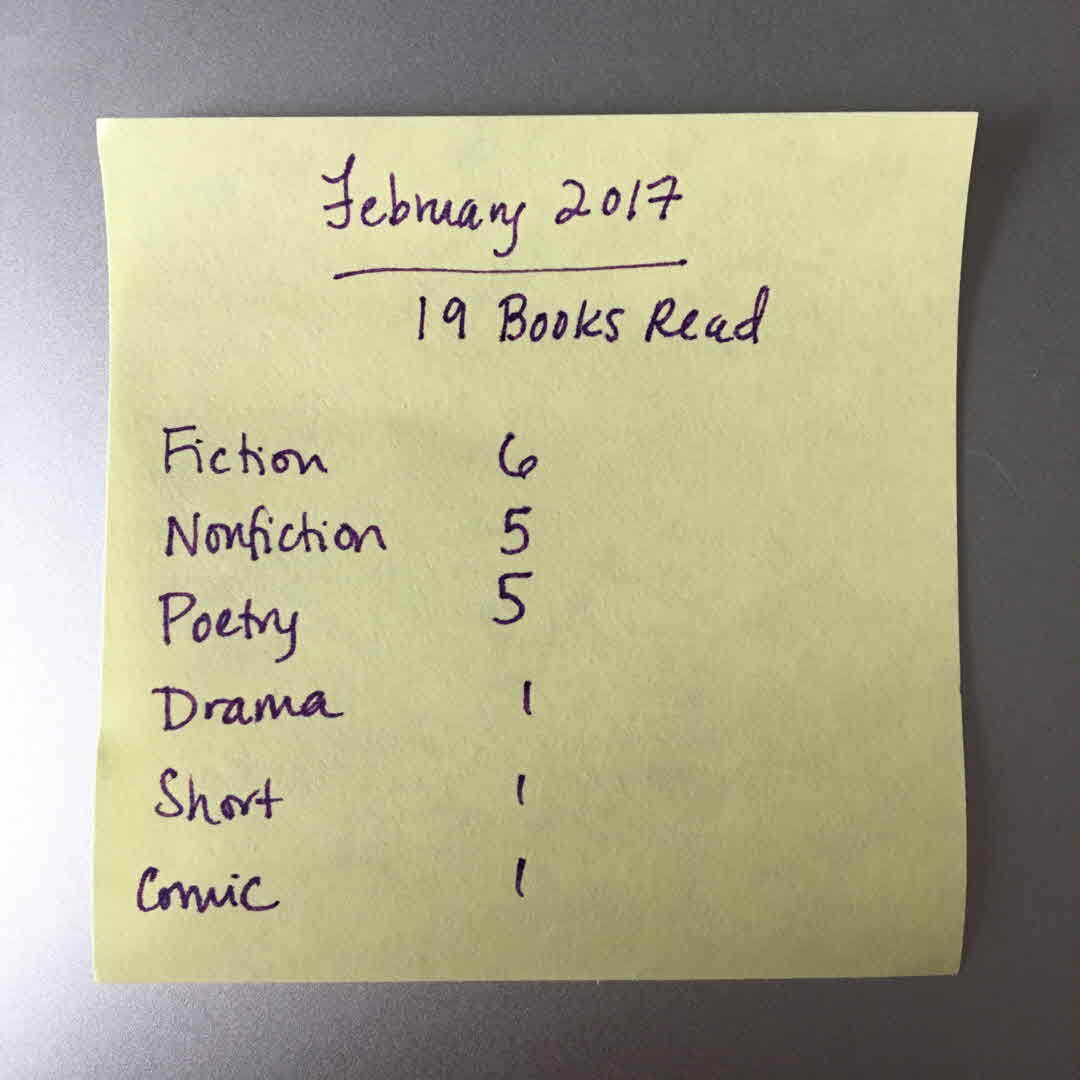 February 2017
19 Books Read
Fiction 6
Nonfiction 5
Poetry 5
Drama 1
Short 1
Comic 1